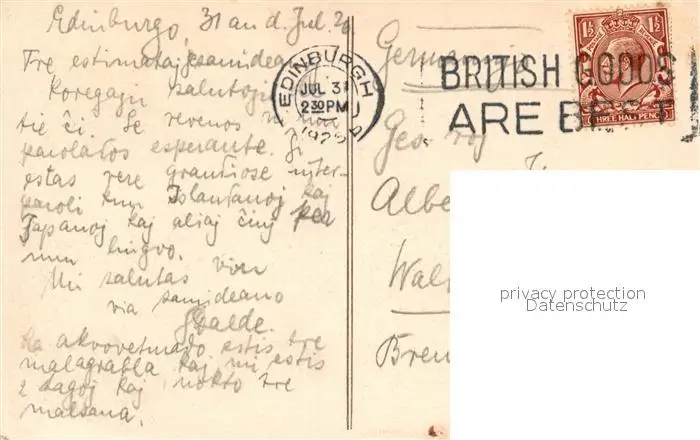 Edinburgo, 31 an d. Jul. 26
Tre estimataj gesamideanoj
Koregajn salutojn
tie ĉi. Se revenos ni nur
parolados esperante. Ĝi
estas vere grandiose inter-
paroli kun Islandanoj kaj
Japanoj kaj aliaj ĉiuj per
unu lingvo.
Mi salutas vin
via samideano
La akvoveturado estis tre
malagrabla kaj mi estis
2 tagoj kaj nokto tre
malsana.
EDINBURGH
JUL 31
2 30 PM
1926
BRITISH GOODS
ARE BEST
1½ 1½
THREE HALF PENCE
Germany
Ges-roj
Albe
Wal
Brem
privacy protection
Datenschutz